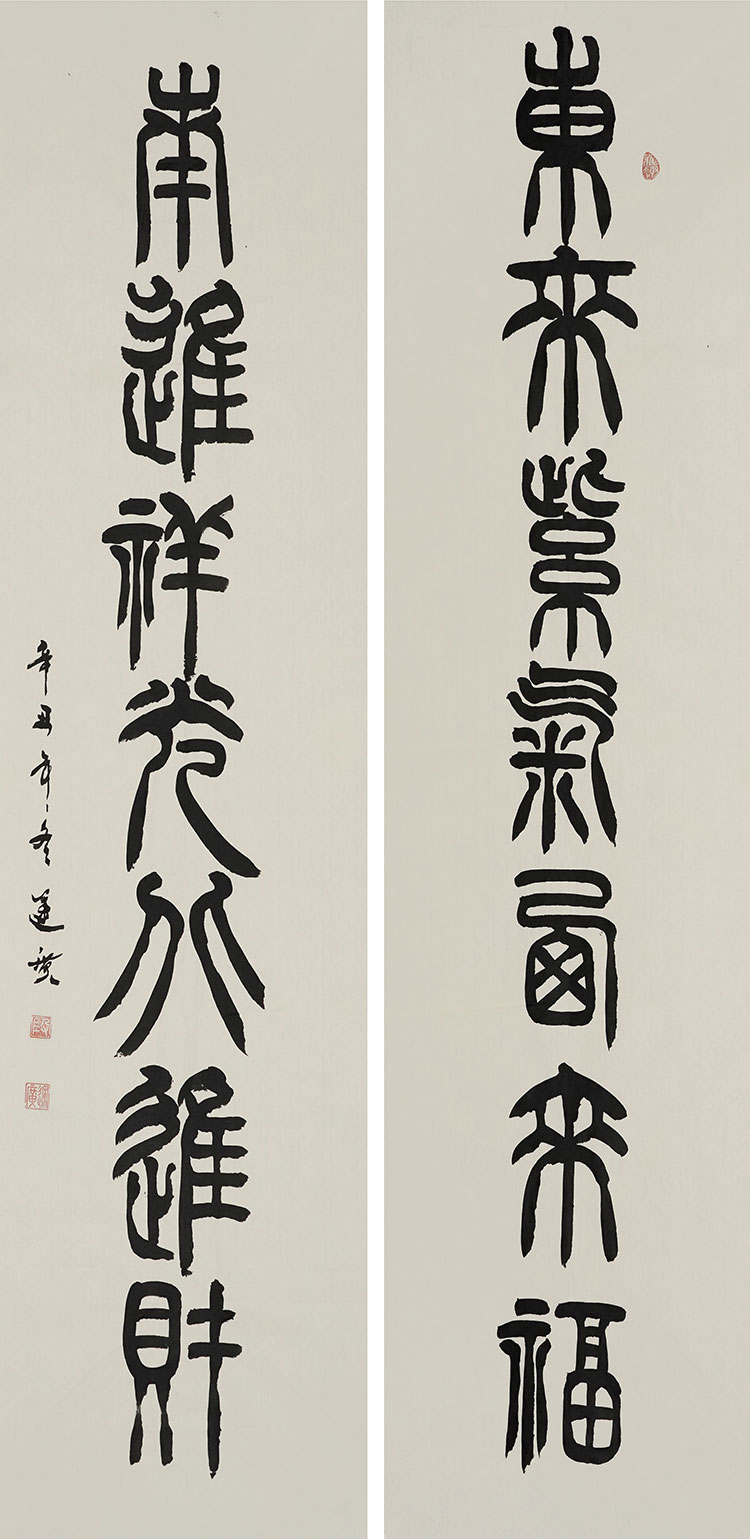 東來紫氣西來福
南進祥光北進財
辛丑年冬